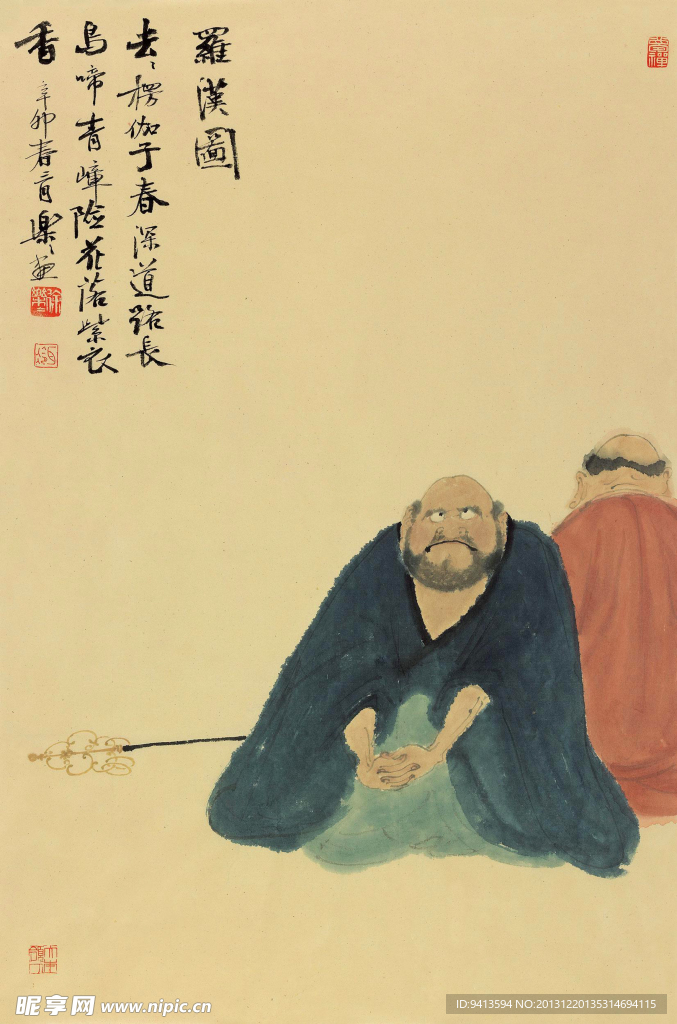 羅漢圖
去、楞伽子春深道路長
鳥啼青嶂險花落紫衣
香 辛卯春月樂、畫
昵享网 www.nipic.cn
ID:9413594 NO:20131220135314694115